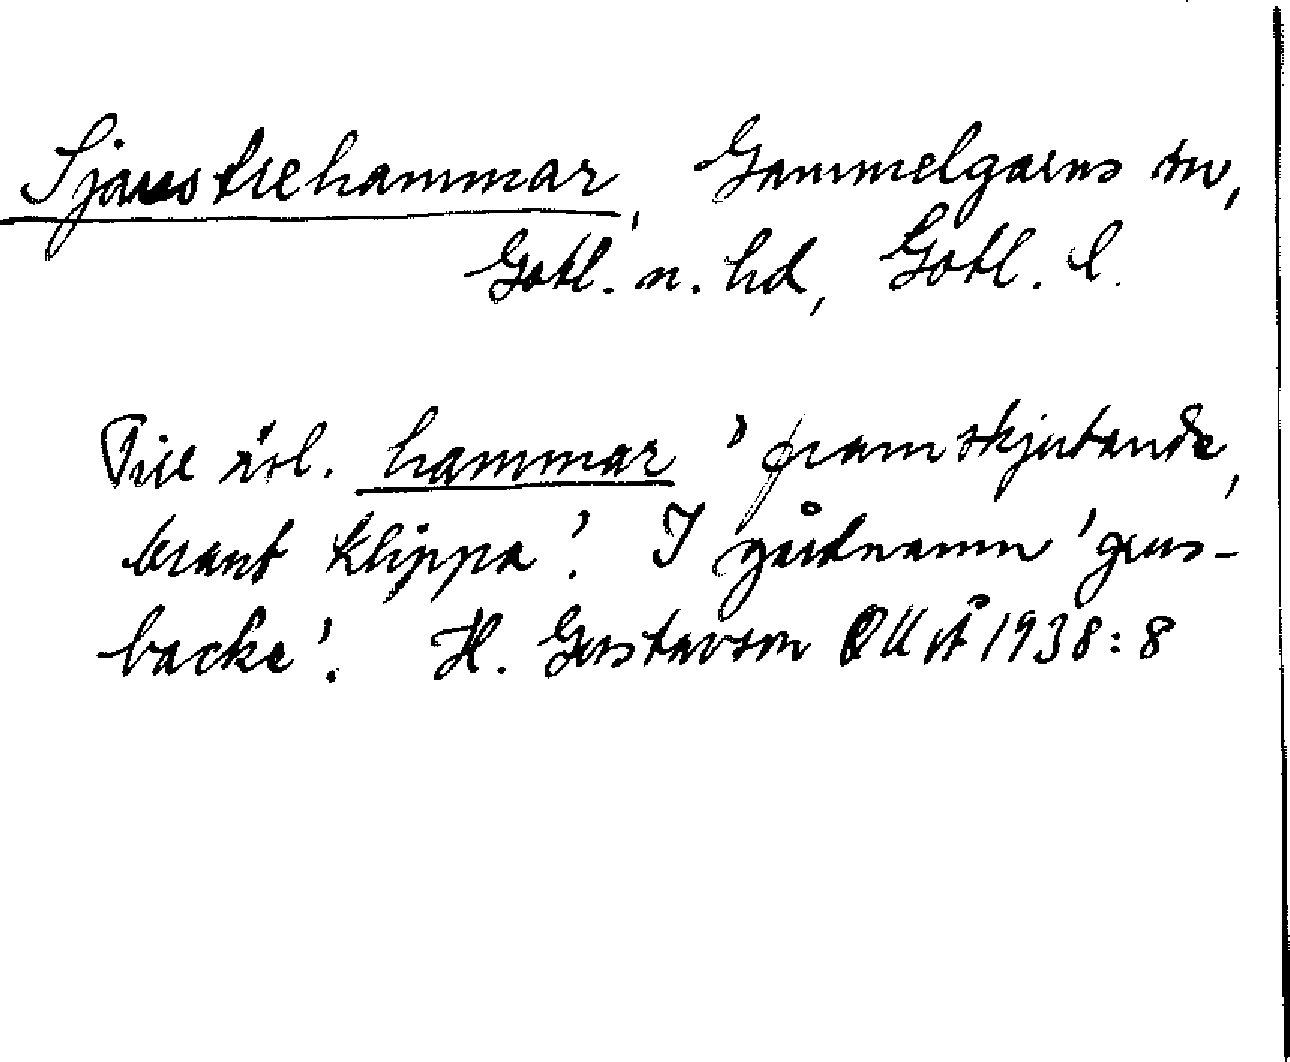 Sjaustrehammar, Gammelgarns sn,
Gotl. n. hd, Gotl. l.
Till rspr. hammar 'framskjutande,
brant klippa'. I gårdnamn 'grus-
backe'. H. Gustavson 1938:8